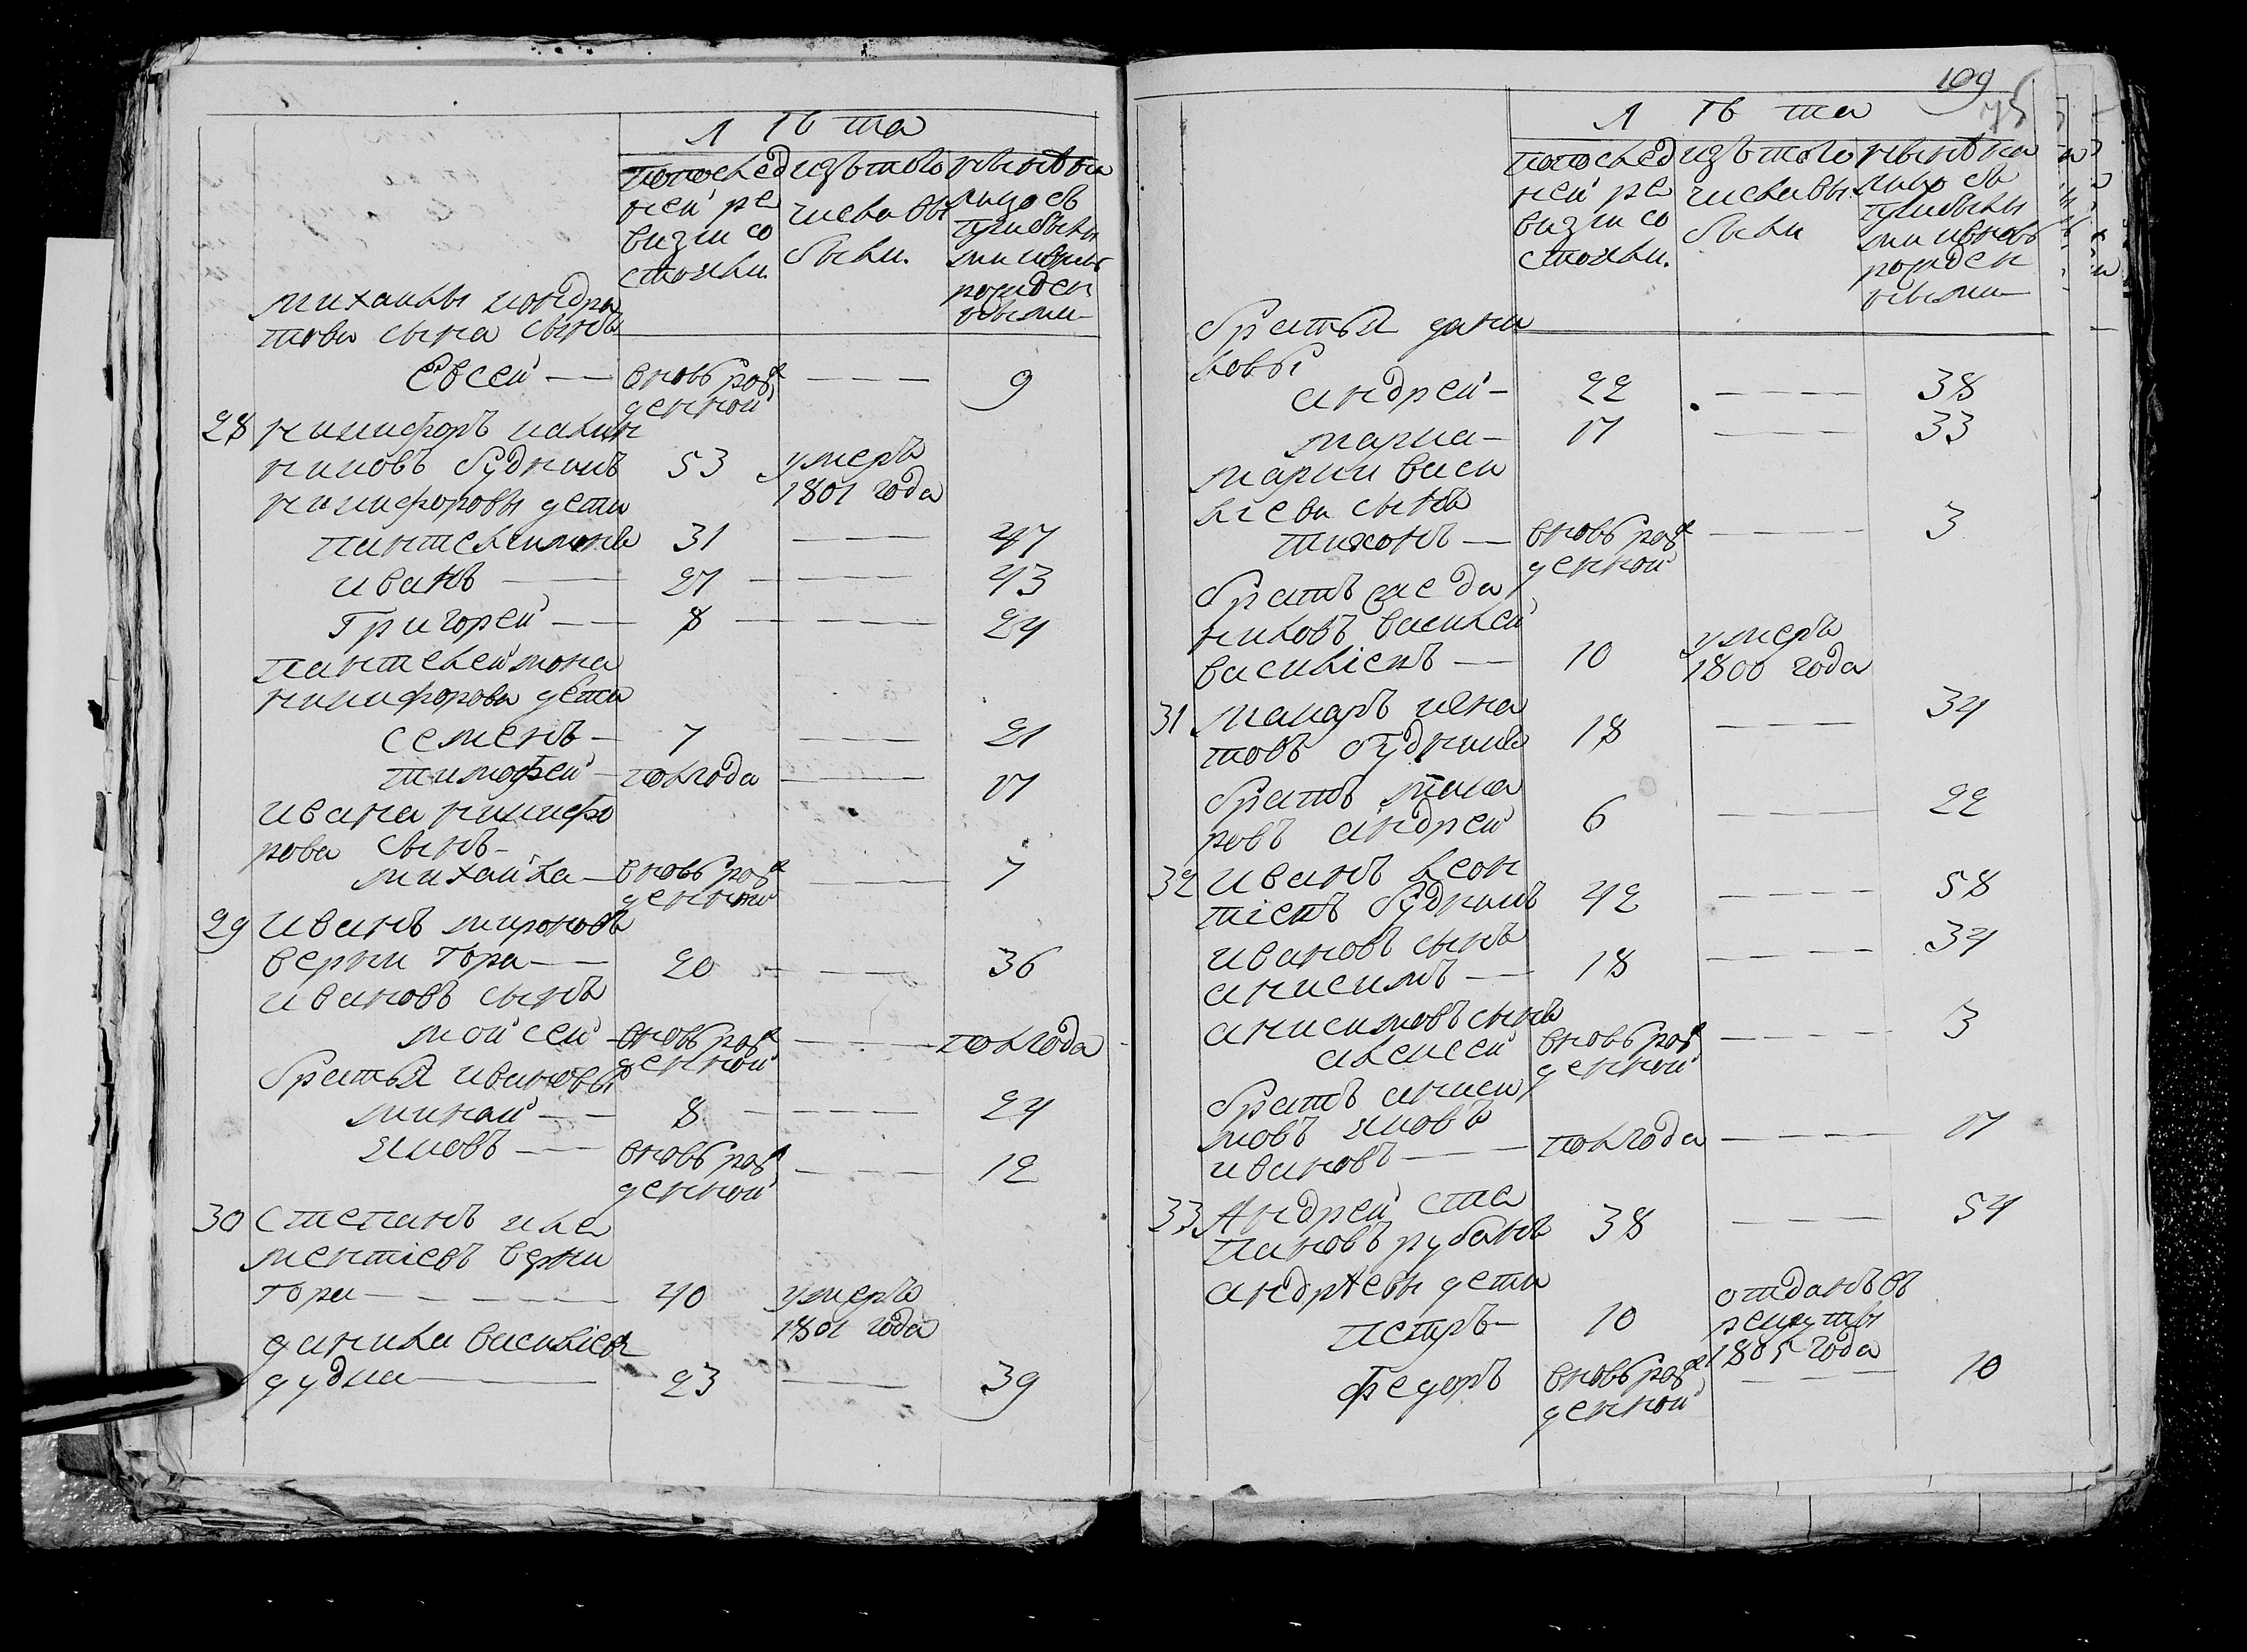 Лѣта
попослед
ней ре
визіи со
стояли.
изътого
числа вы
были.
нынѣна
лицо съ
прибылы
ми ивновь
рожден
ными
михайлы кондра
това сына сынъ
Евсей — вновь рож
денной — — — 9
28 никифоръ калин
никовъ будникъ 53 умеръ
1801 года
никифоровы дети
пантелеимонъ 31 — — — 47
иванъ — 27 — — — — 43
Григорей — — 8 — — — — 24
пантелеймона
никифорова дети
семенъ — 7 — — — 21
тимофей — полгода — — — 17
ивана никифо
рова сынъ —
михайла — вновь рож
денной — — — 7
29 иванъ мироновъ
верни гора — — 20 — — — 36
ивановъ сынъ
мойсей — вновь рож
денной — — — полгода
братья ивановы
минай — — 8 — — — — 24
яковъ — — вновь рож
денной — — — 12
30 степанъ кле
ментіевъ верни
гора — — — — 40 умеръ
1801 года
данила василіев
дудка — 23 — — 39
109
75
Лѣта
попослед
ней ре
визіи со
стояли.
изътого
числавы
были
нынѣна
лицо съ
прибылы
ми ивновь
рожден
ными
братья дани
ловы
андрей — 22 — — — 38
марка — 17 — — — 33
марки васи
ліева сынъ
тихонъ — вновь рож
денной — — — 3
братъ же да
ниловъ василей
василіевъ — 10 умеръ
1800 года
31 макаръ игна
товъ будникъ 18 — — — 34
братъ мака
ровъ андрей 6 — — — 22
32 иванъ леон
тіевъ будникъ 42 — — — 58
ивановъ сынъ
анисимъ — 18 — — — 34
анисимовъ сынъ
алексей вновь рож
денной — — — 3
братъ аниси
мовъ яковъ
ивановъ — — полгода — — — — 17
33 Андрей сте
пановъ рубанъ 38 — — — 54
андрѣевы дети
петръ — 10 отданъвъ
рекруты
1805 года
федоръ вновь рож
денной — — — 10